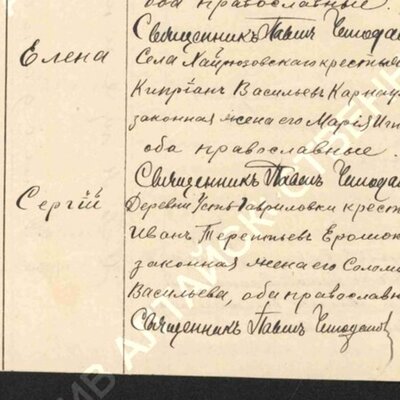 оба православные.
Священникъ Павлъ
Елена
Села Хайрюзовскаго крестья
Кипріанъ Васильевъ Карнау
законная жена его Марія Иг
оба православные.
Священникъ Павлъ
Сергій
Деревни Усть-Гавриловки крест
Иванъ Терентьевъ Ерошок
законная жена его Солом
Васильева, оба православн
Священникъ Павлъ